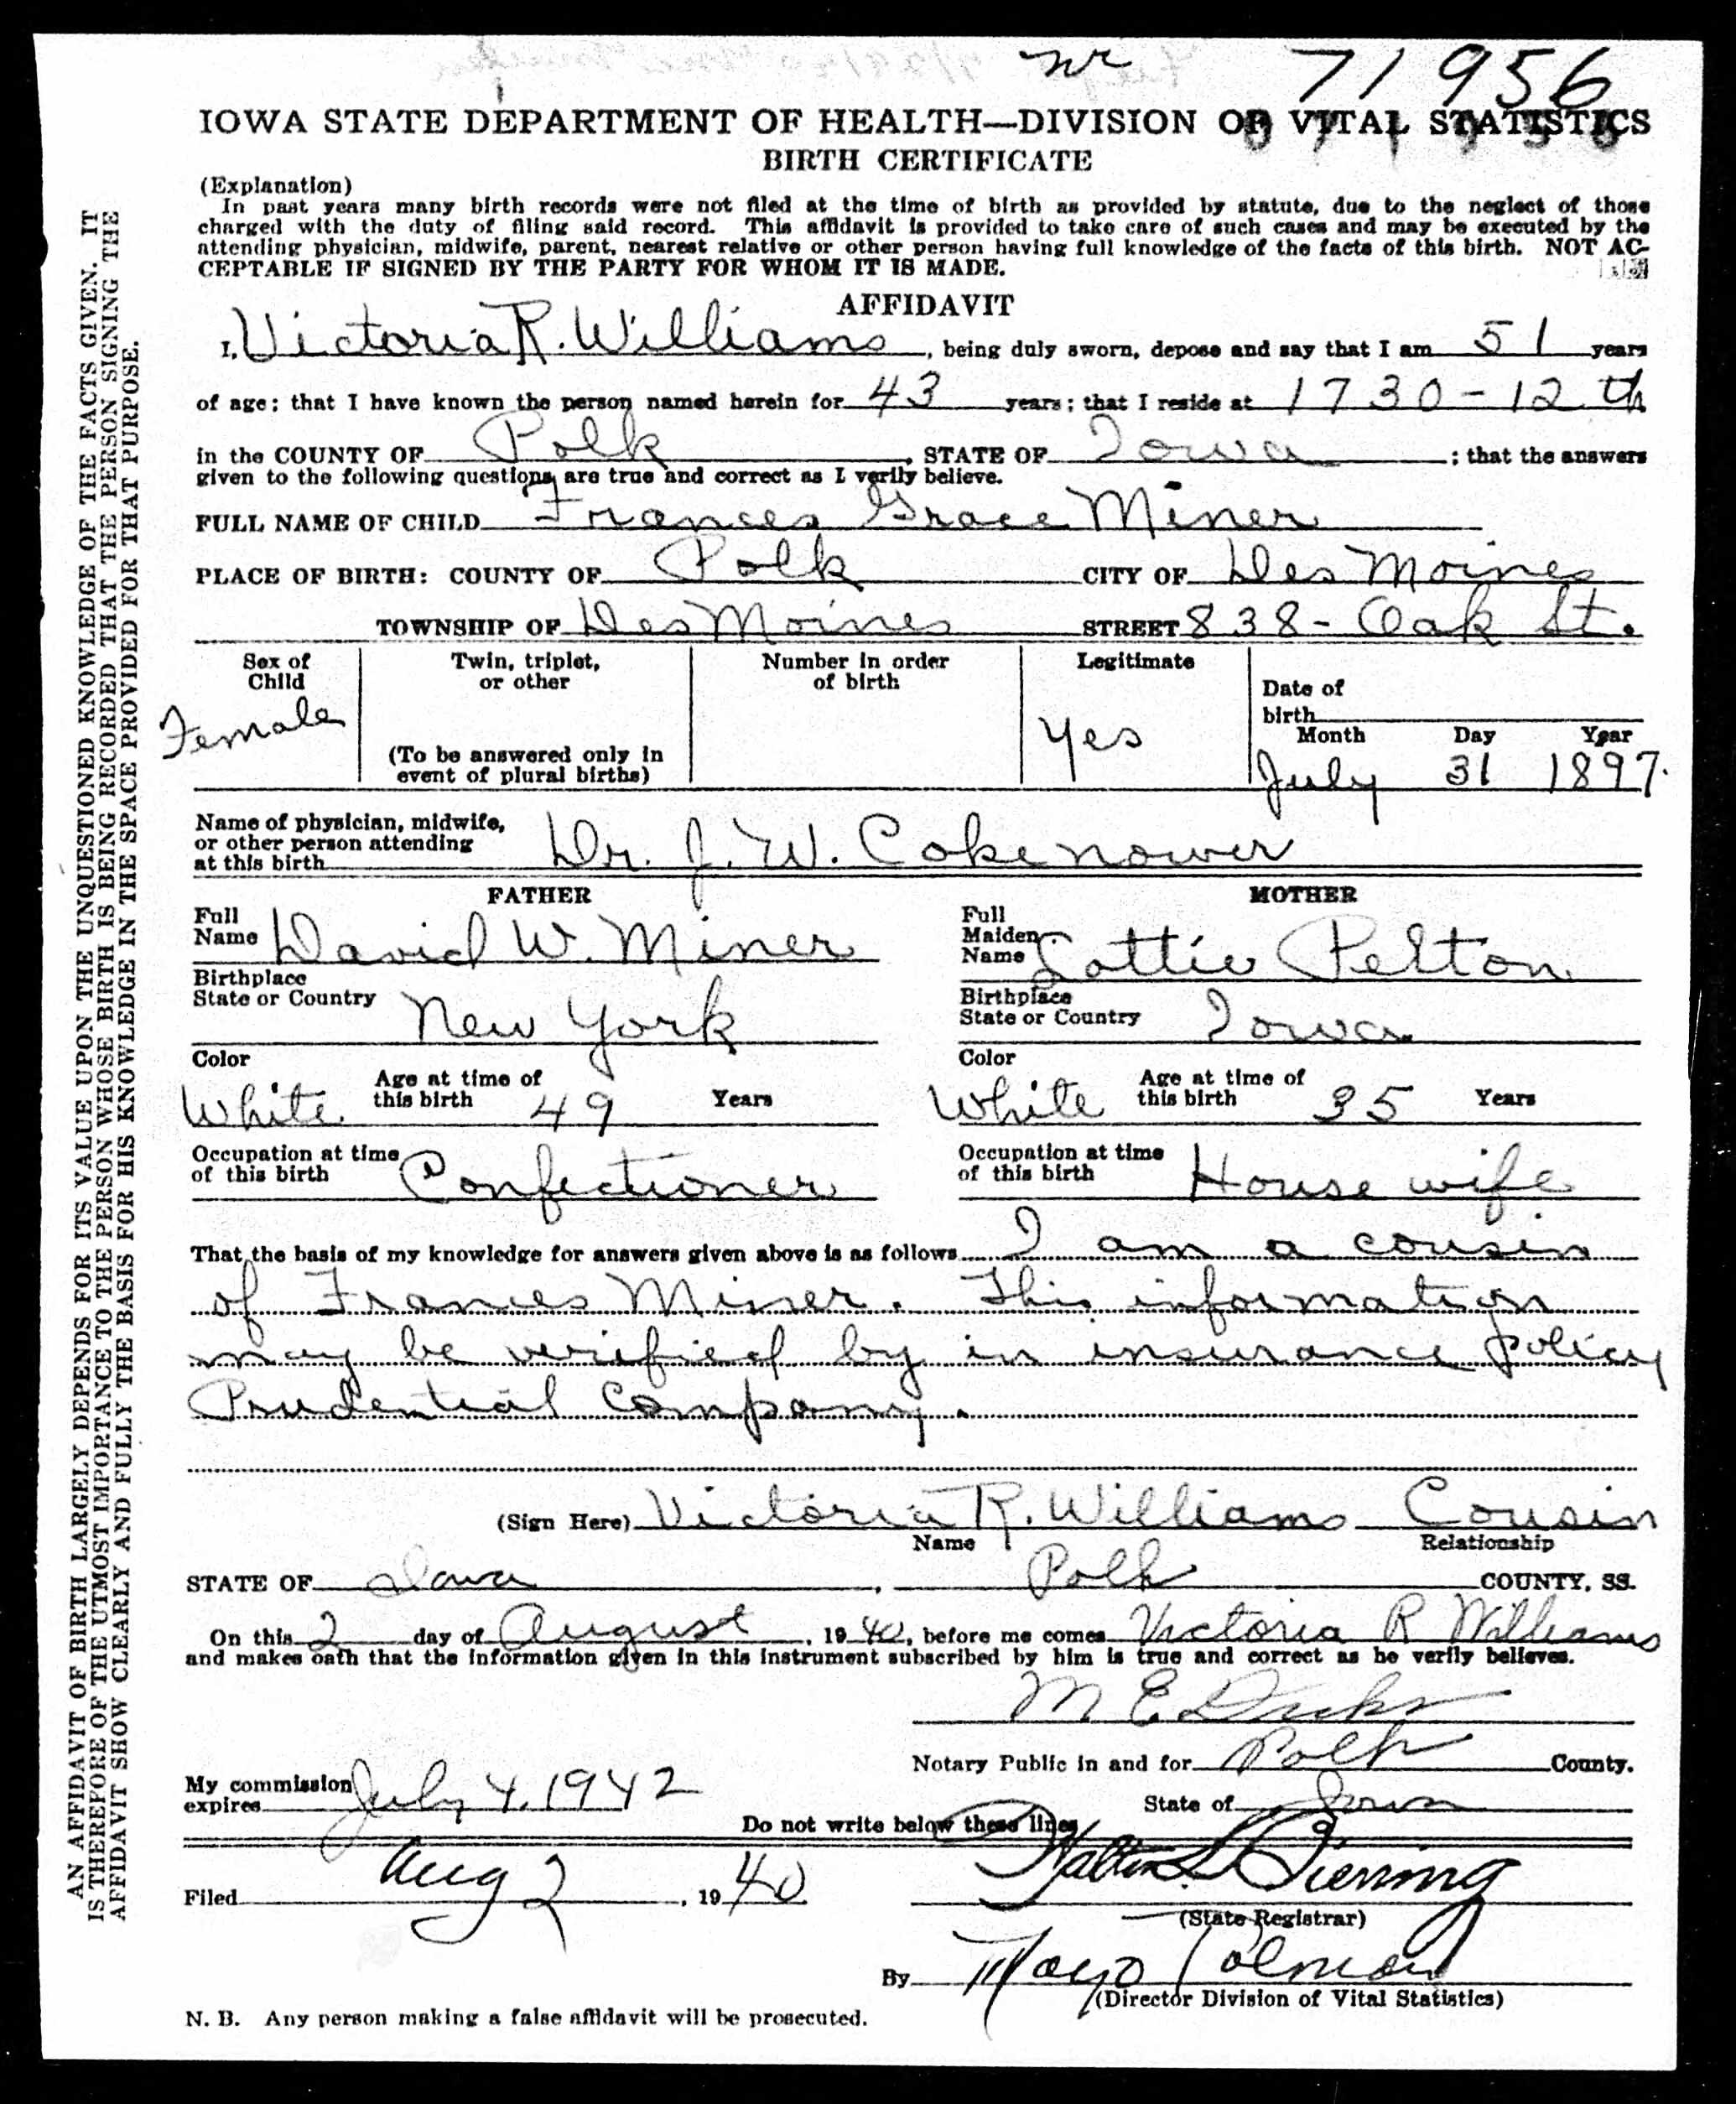 nr 71956
IOWA STATE DEPARTMENT OF HEALTH—DIVISION OF VITAL STATISTICS
BIRTH CERTIFICATE
(Explanation)
In past years many birth records were not filed at the time of birth as provided by statute, due to the neglect of those
charged with the duty of filing said record. This affidavit is provided to take care of such cases and may be executed by the
attending physician, midwife, parent, nearest relative or other person having full knowledge of the facts of this birth. NOT AC-
CEPTABLE IF SIGNED BY THE PARTY FOR WHOM IT IS MADE.
AFFIDAVIT
I, Victoria R. Williams, being duly sworn, depose and say that I am 51 years
of age; that I have known the person named herein for 43 years; that I reside at 1730-12th
in the COUNTY OF Polk, STATE OF Iowa; that the answers
given to the following questions are true and correct as I verily believe.
FULL NAME OF CHILD Frances Grace Miner
PLACE OF BIRTH: COUNTY OF Polk CITY OF Des Moines
TOWNSHIP OF Des Moines STREET 838- Oak St.
Sex of Child Female
Twin, triplet, or other
(To be answered only in event of plural births)
Number in order of birth
Legitimate Yes
Date of birth
Month Day Year
July 31 1897.
Name of physician, midwife,
or other person attending
at this birth Dr. J. W. Cokenower
FATHER
Full Name David W. Miner
Birthplace State or Country New York
Color White Age at time of this birth 49 Years
Occupation at time of this birth Confectioner
MOTHER
Full Maiden Name Lottie Pelton
Birthplace State or Country Iowa
Color White Age at time of this birth 35 Years
Occupation at time of this birth House wife
That the basis of my knowledge for answers given above is as follows I am a cousin
of Frances Miner. This information
may be verified by in insurance policy
Prudential Company.
(Sign Here) Victoria R. Williams Cousin
Name Relationship
STATE OF Iowa, Polk COUNTY, SS.
On this 2 day of August, 1940, before me comes Victoria R Williams
and makes oath that the information given in this instrument subscribed by him is true and correct as he verily believes.
M E
Notary Public in and for Polk County.
My commission expires July 4, 1942
State of Iowa
Do not write below these lines
Filed Aug 2, 1940
Walter L Bierring
(State Registrar)
By Mayo Tolman
(Director Division of Vital Statistics)
N. B. Any person making a false affidavit will be prosecuted.
AN AFFIDAVIT OF BIRTH LARGELY DEPENDS FOR ITS VALUE UPON THE UNQUESTIONED KNOWLEDGE OF THE FACTS GIVEN. IT
IS THEREFORE OF THE UTMOST IMPORTANCE TO THE PERSON WHOSE BIRTH IS BEING RECORDED THAT THE PERSON SIGNING THE
AFFIDAVIT SHOW CLEARLY AND FULLY THE BASIS FOR HIS KNOWLEDGE IN THE SPACE PROVIDED FOR THAT PURPOSE.